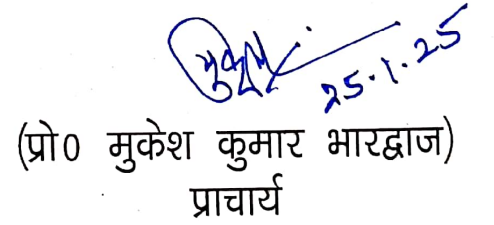 मुकेश
25.1.25
(प्रो0 मुकेश कुमार भारद्वाज)
प्राचार्य